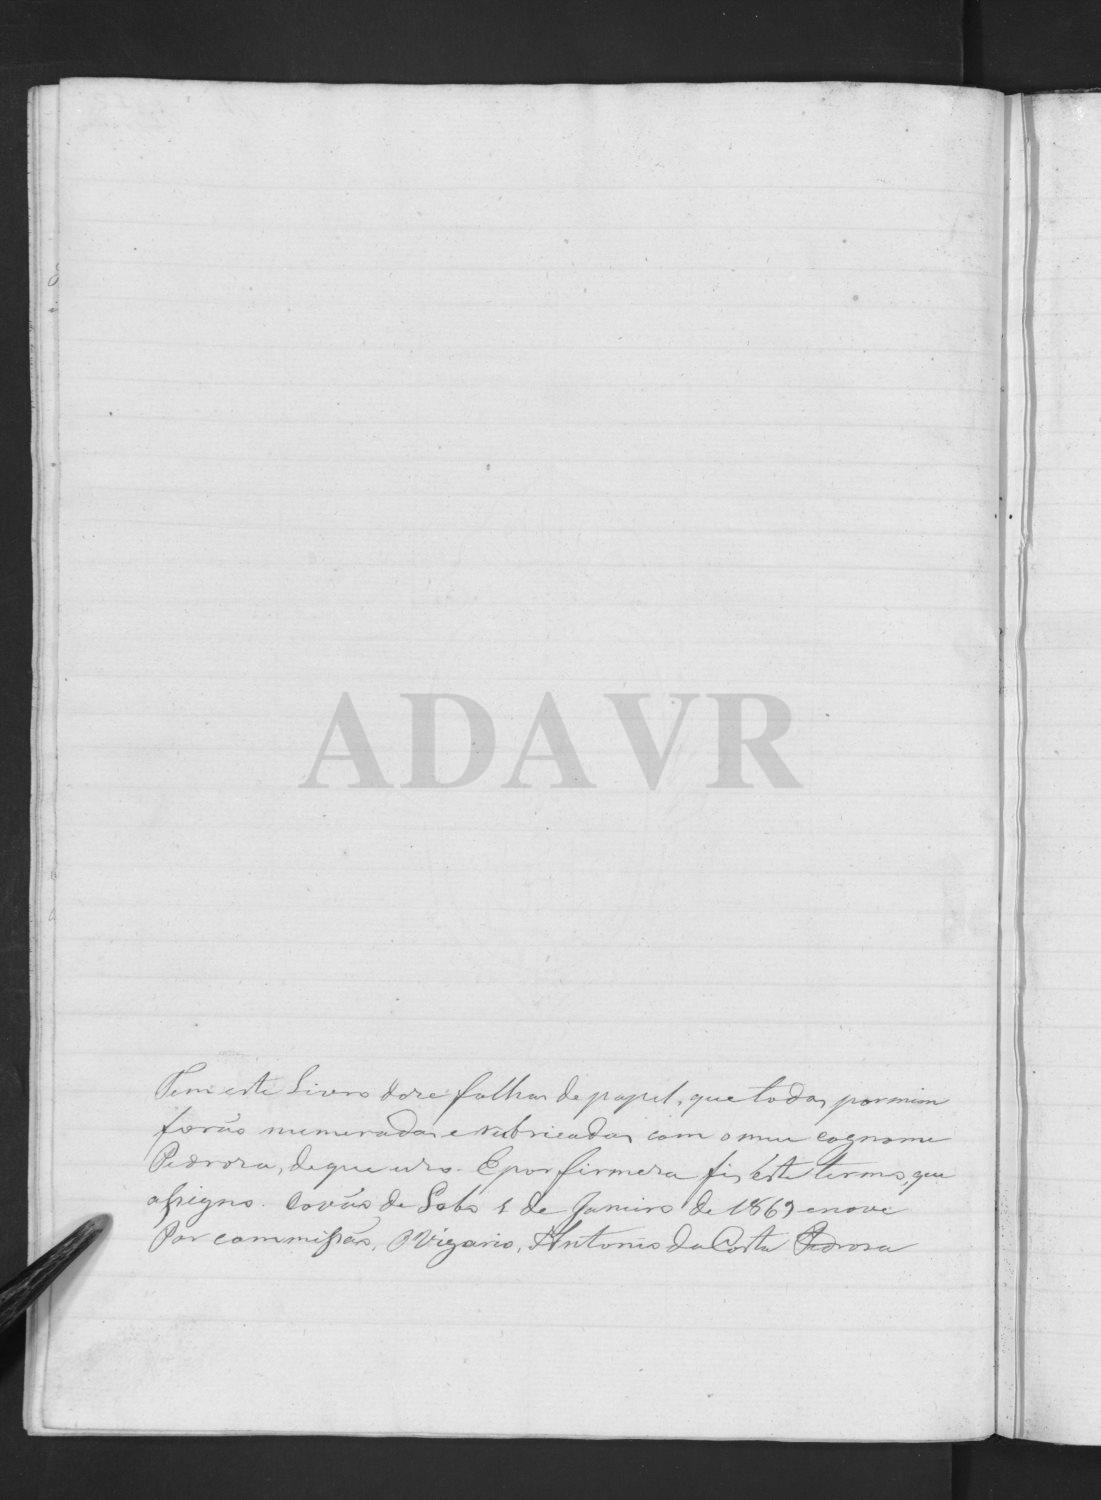 ADAVR
Tem este Livro doze folhas de papel, que todas por mim
forão numeradas e rubricadas com o meu cognome
Pedroza, de que uzo. E por firmeza fiz este termo, que
assigno. Covão de Lobo 1 de Janeiro de 1869 e nove
Por commissão, O Vigario, Antonio da Costa Pedroza